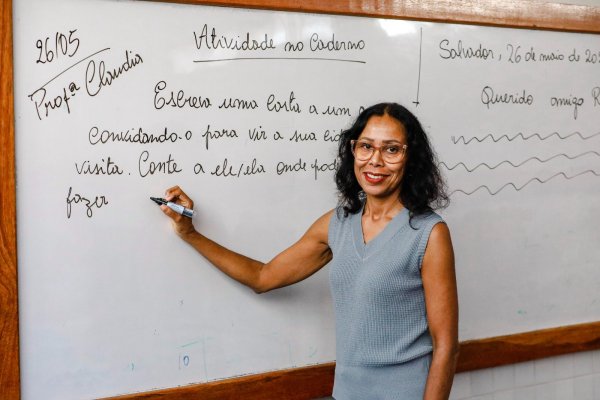 26/05
Profª Claudia
Atividade no Caderno
Escreva uma carta a um a
Convidando-o para vir a sua cid
visita. Conte a ele/ela onde pod
fazer
Salvador, 26 de maio de 20
Querido amigo R
10